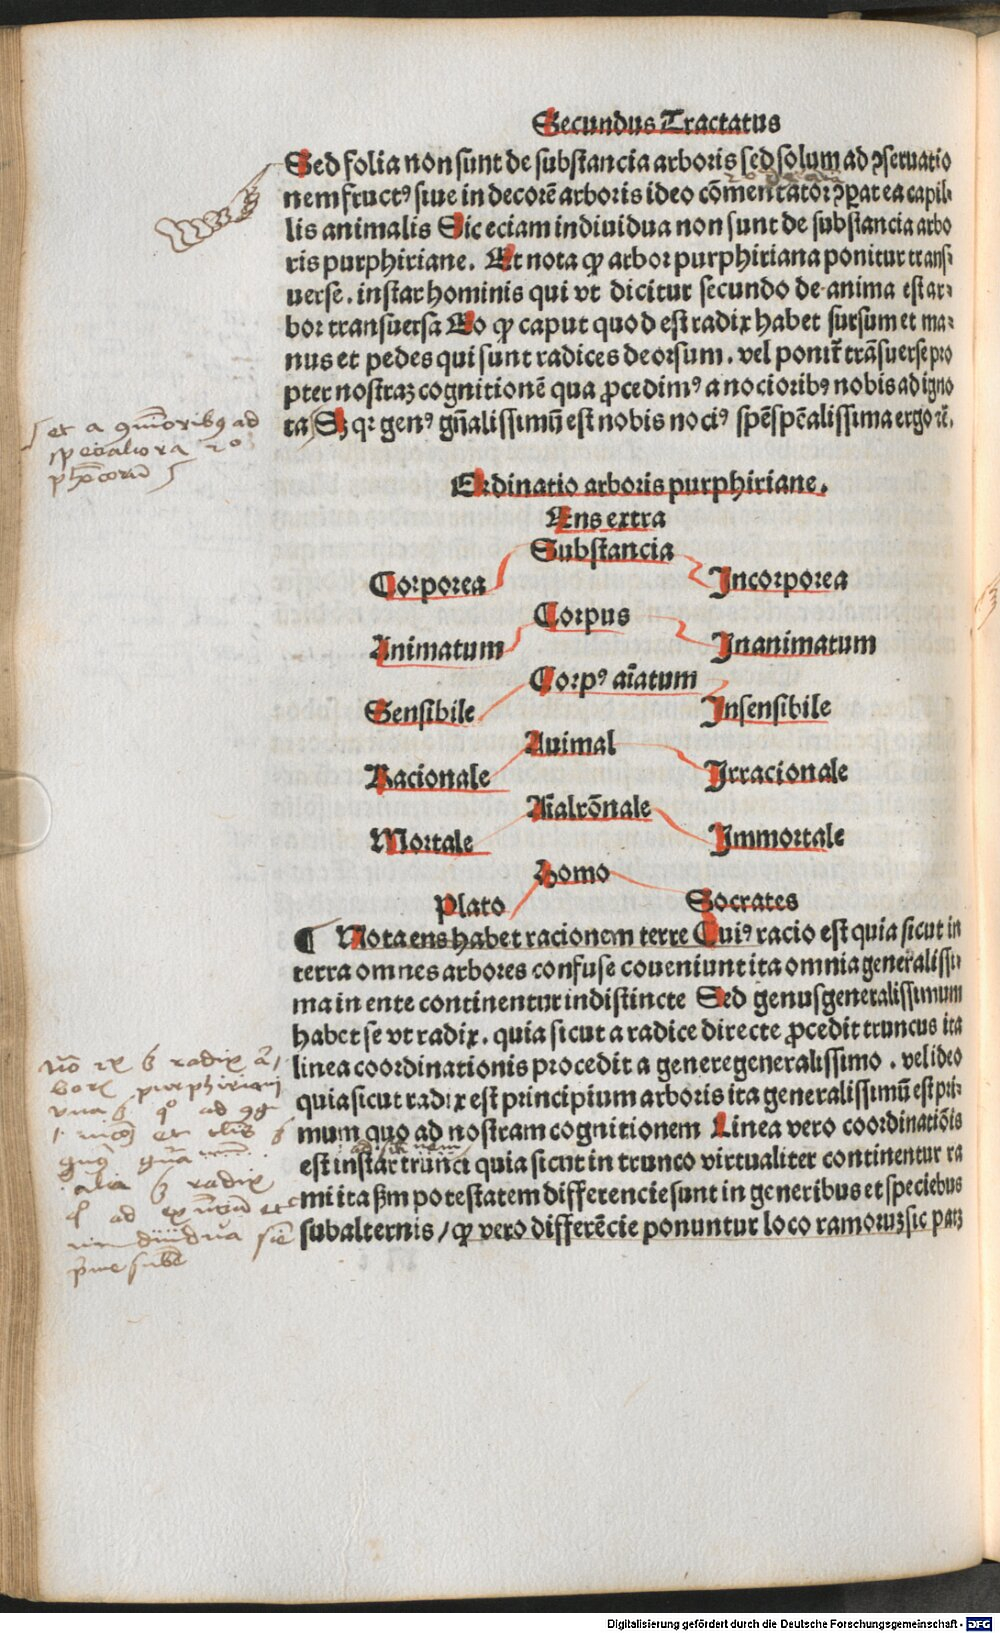 Secundus Tractatus
Sed folia non sunt de substancia arboris sed solum ad ꝯseruatio
nem fructꝰ siue in decorē arboris ideo cōmentator ꝯꝑat ea capil⸗
lis animalis Sic eciam indiuidua non sunt de substancia arbo
ris purphiriane. Et nota ꝙ arbor purphiriana ponitur transf
uerse. instar hominis qui vt dicitur secundo de anima est ar⸗
bor transuersa Eo ꝙ caput quod est radix habet sursum et ma⸗
nus et pedes qui sunt radices deorsum. vel ponit̄ trāsuerse pro
pter nostraꝫ cognitionē qua ꝓcedimꝰ a nocioribꝰ nobis ad igno
ta Sꝫ qꝛ genꝰ gn̄alissimū est nobis nociꝰ spē spēalissima ergo
et a ad
specaliora
Ordinatio arboris purphiriane.
Ens extra
Substancia
Corporea Incorporea
Corpus
Animatum Inanimatum
Corpꝰ aīatum
Sensibile Insensibile
Auimal
Racionale Irracionale
Aīal rōnale
Mortale Immortale
Homo
Plato Socrates
¶ Nota ens habet racionem terre Cuiꝰ racio est quia sicut in
terra omnes arbores confuse coueniunt ita omnia generalissi
ma in ente continentur indistincte Sed genus generalissimum
habet se vt radix. quia sicut a radice directe ꝓcedit truncus ita
linea coordinationis procedit a genere generalissimo. vel ideo
quia sicut radix est principium arboris ita generalissimū est pri⸗
mum quo ad nostram cognitionem Linea vero coordinatiōis
est instar trunci quia sicut in trunco virtualiter continentur ra
mi ita ẜm potestatem differencie sunt in generibus et speciebus
subalternis / ꝙ vero differēcie ponuntur loco ramoruꝫ sic patꝫ
radix
purphiriani
vna ad
et
alia radix
ad
Digitalisierung gefördert durch die Deutsche Forschungsgemeinschaft - DFG